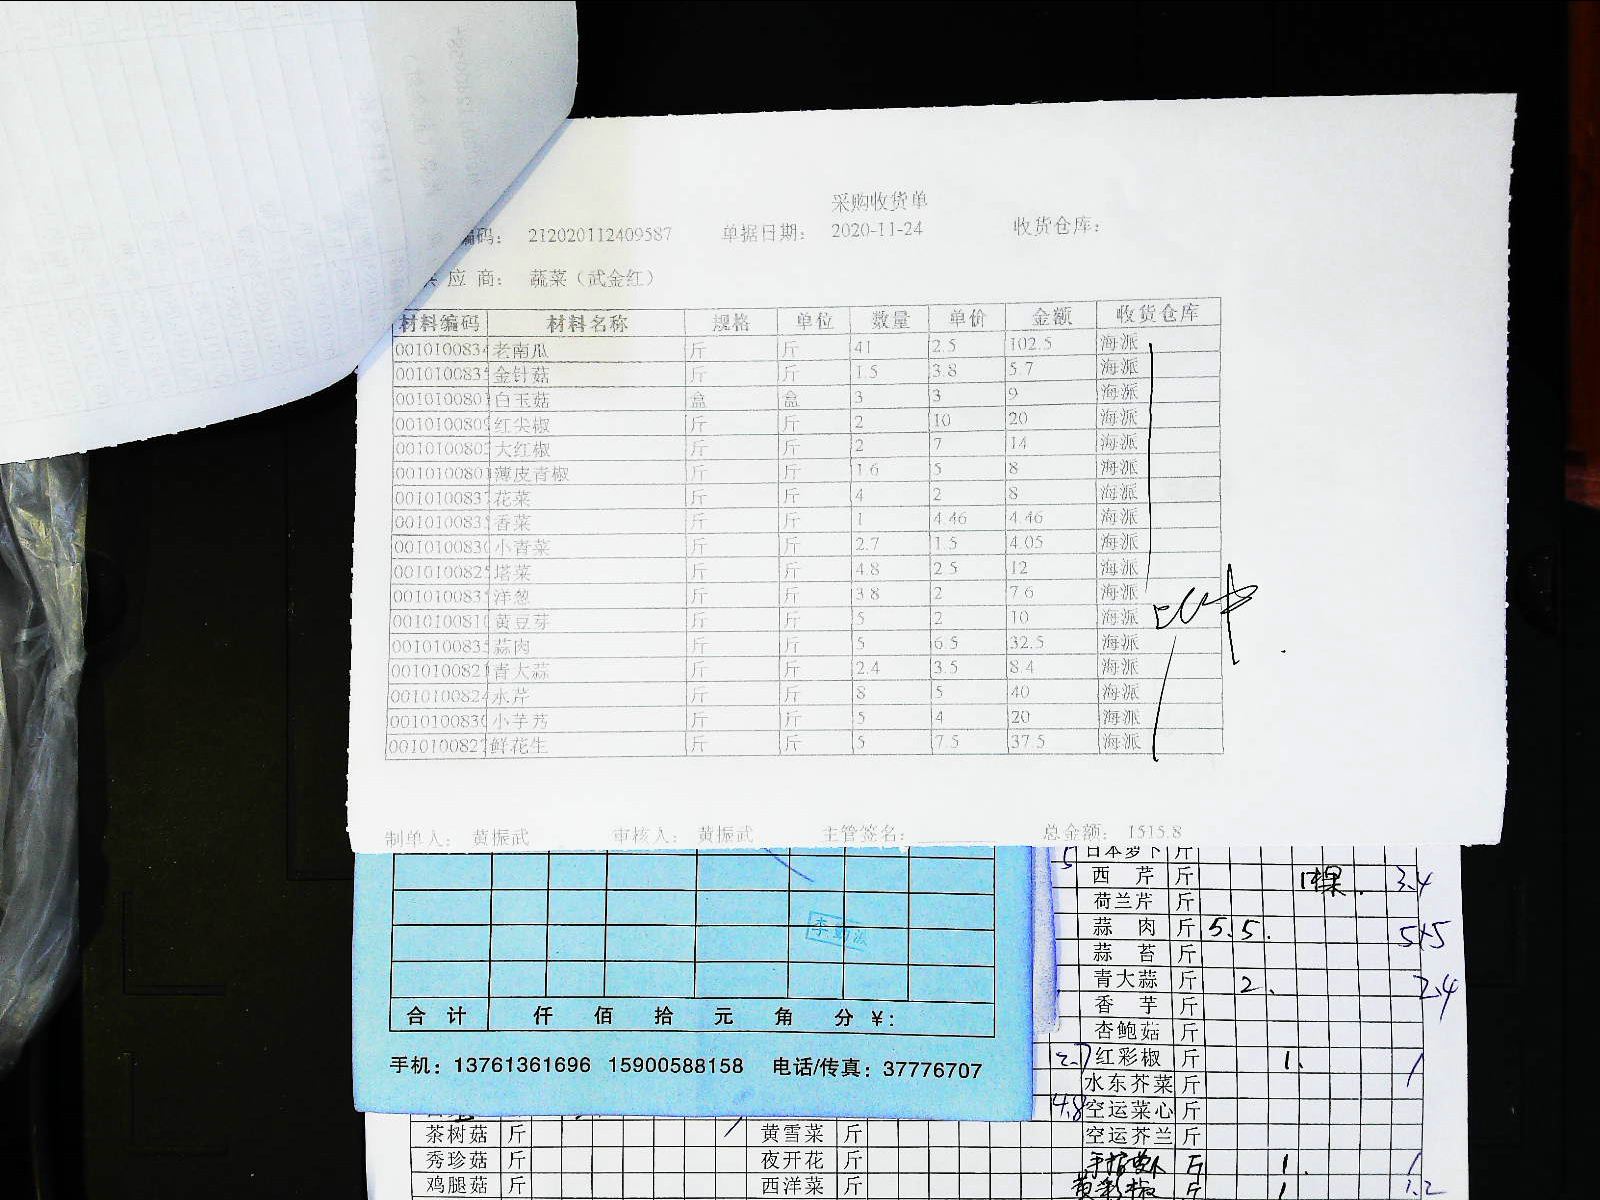 采购收货单
编码： 212020112409587 单据日期： 2020-11-24 收货仓库：
应 商： 蔬菜（武金红）
材料编码 材料名称 规格 单位 数量 单价 金额 收货仓库
001010083 老南瓜 斤 斤 41 2.5 102.5 海派
001010083 金针菇 斤 斤 1.5 3.8 5.7 海派
001010080 白玉菇 盒 盒 3 3 9 海派
001010080 红尖椒 斤 斤 2 10 20 海派
001010080 大红椒 斤 斤 2 7 14 海派
001010080 薄皮青椒 斤 斤 1.6 5 8 海派
001010083 花菜 斤 斤 4 2 8 海派
001010083 香菜 斤 斤 1 4.46 4.46 海派
001010083 小青菜 斤 斤 2.7 1.5 4.05 海派
001010082 塔菜 斤 斤 4.8 2.5 12 海派
001010083 洋葱 斤 斤 3.8 2 7.6 海派
001010081 黄豆芽 斤 斤 5 2 10 海派
001010083 蒜肉 斤 斤 5 6.5 32.5 海派
001010082 青大蒜 斤 斤 2.4 3.5 8.4 海派
001010082 水芹 斤 斤 8 5 40 海派
001010083 小芋艿 斤 斤 5 4 20 海派
001010082 鲜花生 斤 斤 5 7.5 37.5 海派
制单人： 黄振武 审核人： 黄振武 主管签名： 总金额： 1515.8
合 计 仟 佰 拾 元 角 分 ¥：
手机：13761361696 15900588158 电话/传真：37776707
5 日本萝卜 斤
西 芹 斤 1棵. 3.4
荷兰芹 斤
蒜 肉 斤 5.5. 5+5
蒜 苔 斤
青大蒜 斤 2. 2.4
香 芋 斤
杏鲍菇 斤
2.7 红彩椒 斤 1. 1
水东芥菜 斤
4.8 空运菜心 斤
茶树菇 斤 黄雪菜 斤 空运芥兰 斤
秀珍菇 斤 夜开花 斤 手指萝卜 斤 1. 1
鸡腿菇 斤 西洋菜 斤 黄彩椒 斤 1 1.2